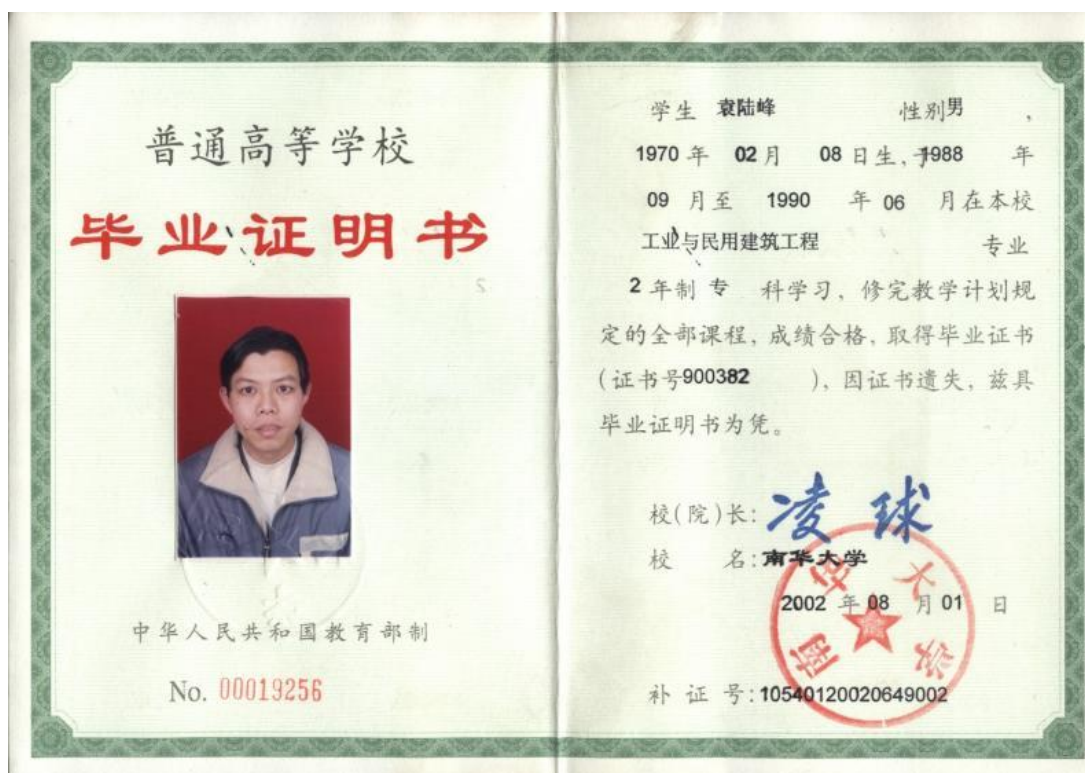 普通高等学校
毕业证明书
中华人民共和国教育部制
No. 00019256
学生 袁陆峰 性别男 ,
1970 年 02 月 08 日生,于1988 年
09 月至 1990 年 06 月在本校
工业与民用建筑工程 专业
2 年制 专 科学习,修完教学计划规
定的全部课程,成绩合格,取得毕业证书
(证书号900382 ),因证书遗失,兹具
毕业证明书为凭。
校(院)长: 凌球
校 名: 南华大学
2002 年 08 月 01 日
补 证 号: 10540120020649002
南华大学